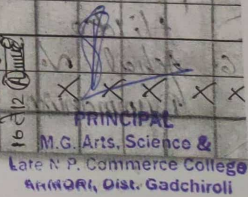 X X X X X
PRINCIPAL
M.G. Arts, Science &
Late N.P. Commerce College
ARMORI, Dist. Gadchiroli